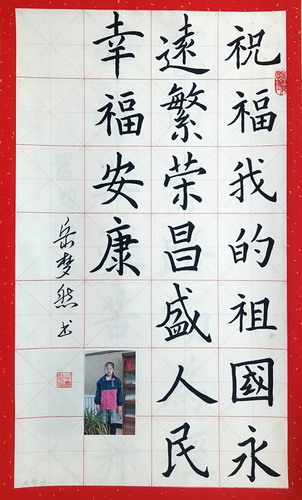 祝福我的祖國永
遠繁荣昌盛人民
幸福安康
岳梦然书